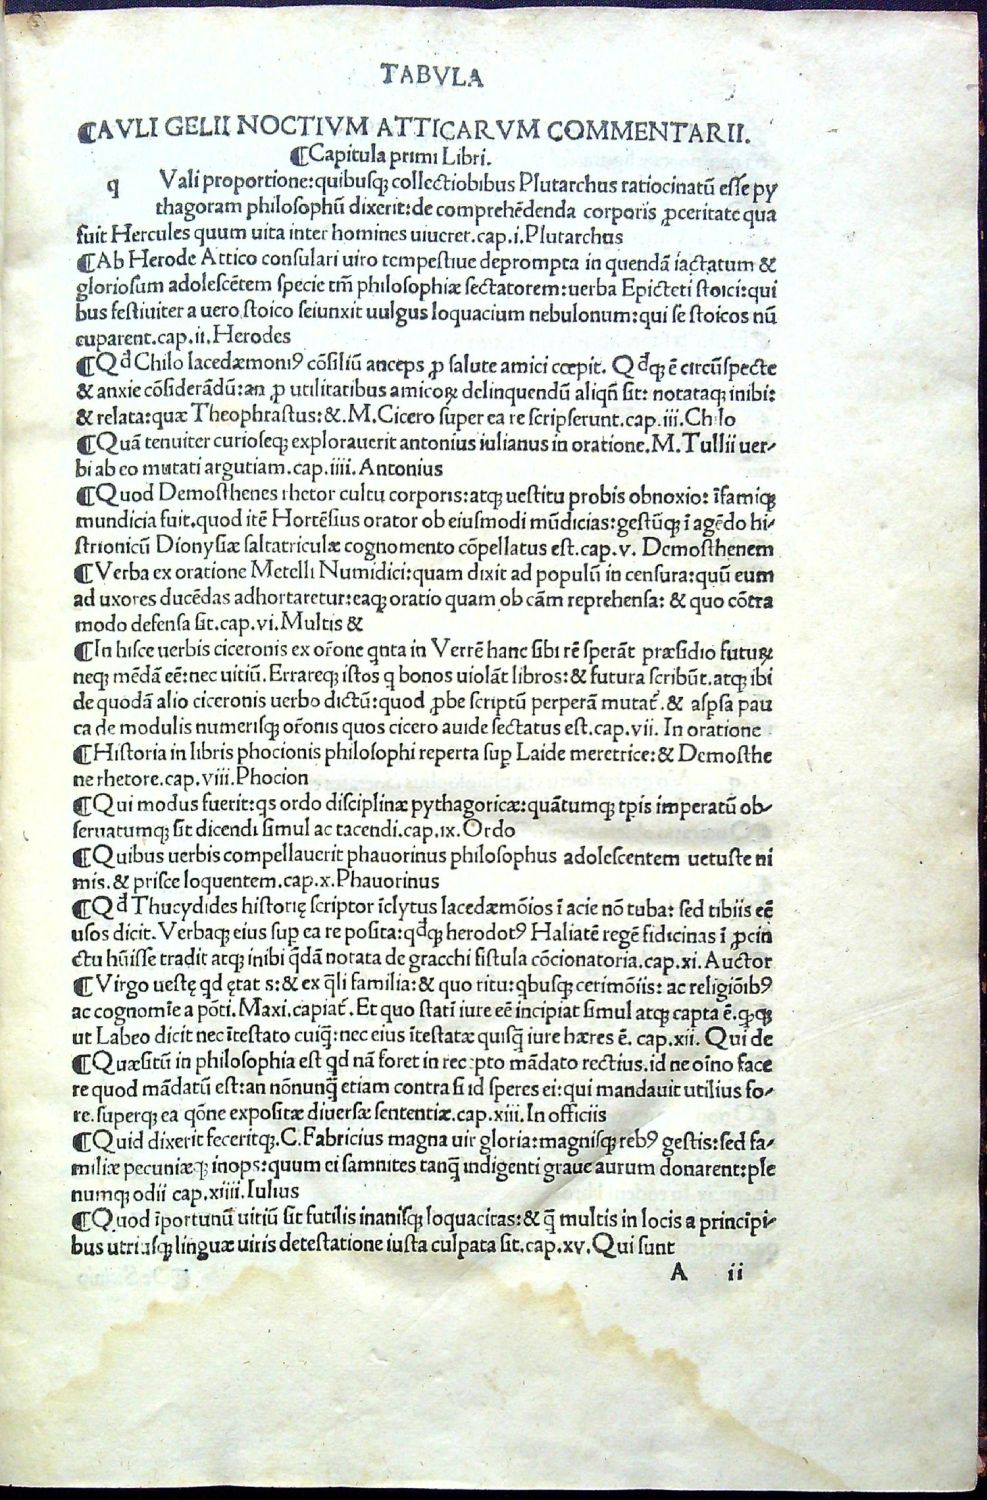 TABVLA
¶AVLI GELII NOCTIVM ATTICARVM COMMENTARII.
¶Capitula primi Libri.
q Vali proportione:quibusqꝫ collectiobibus Plutarchus ratiocinatū esse py
thagoram philosophū dixerit:de comprehēdenda corporis ꝓceritate qua
fuit Hercules quum uita inter homines uiueret.cap.i.Plutarchus
¶Ab Herode Attico consulari uiro tempestiue deprompta in quendā iactatum &
gloriosum adolescētem specie tm̄ philosophiæ sectatorem:uerba Epicteti stoici:qui
bus festiuiter a uero stoico seiunxit uulgus loquacium nebulonum:qui se stoicos nū
cuparent.cap.ii.Herodes
¶Qd Chilo lacedæmoniꝰ cōsiliū anceps ꝓ salute amici cœpit. Qdqꝫ ē circūspecte
& anxie cōsiderādū:an ꝓ utilitatibus amicoꝝ delinquendū aliqn̄ sit: notataqꝫ inibi:
& relata:quæ Theophrastus:&.M.Cicero super ea re scripserunt.cap.iii.Chilo
¶Quā tenuiter curioseqꝫ explorauerit antonius iulianus in oratione.M.Tullii uer-
bi ab eo mutati argutiam.cap.iiii.Antonius
¶Quod Demosthenes rhetor cultu corporis:atqꝫ uestitu probis obnoxio: īfamiqꝫ
mundicia fuit.quod itē Hortēsius orator ob eiusmodi mūdicias:gestūqꝫ ī agēdo hi-
strionicū Dionysiæ saltatriculæ cognomento cōpellatus est.cap.v. Demosthenem
¶Verba ex oratione Metelli Numidici:quam dixit ad populū in censura:quū eum
ad uxores ducēdas adhortaretur:eaqꝫ oratio quam ob cām reprehensa: & quo cōtra
modo defensa sit.cap.vi.Multis &
¶In hisce uerbis ciceronis ex or̄one qnta in Verrē hanc sibi rē sperāt præsidio futuꝝ
neqꝫ mēdā eē:nec uitiū.Errareqꝫ istos q bonos uiolāt libros:& futura scribūt.atqꝫ ibi
de quodā alio ciceronis uerbo dictū:quod ꝓbe scriptū perperā mutat̄.& asp̱sa pau
ca de modulis numerisqꝫ or̄onis quos cicero auide sectatus est.cap.vii. In oratione
¶Historia in libris phocionis philosophi reperta sup̱ Laide meretrice:& Demosthe
ne rhetore.cap.viii.Phocion
¶Qui modus fuerit:qs ordo disciplinæ pythagoricæ:quātumqꝫ tp̄is imperatū ob-
seruatumqꝫ sit dicendi simul ac tacendi.cap.ix.Ordo
¶Quibus uerbis compellauerit phauorinus philosophus adolescentem uetuste ni
mis.& prisce loquentem.cap.x.Phauorinus
¶Qd Thucydides historię scriptor īclytus lacedæmōios ī acie nō tuba: sed tibiis eē
usos dicit.Verbaqꝫ eius sup̱ ea re posita:qdqꝫ herodotꝰ Haliatē regē fidicinas ī ꝓcin
ctu hūisse tradit atqꝫ inibi q̄dā notata de gracchi fistula cōcionatoria.cap.xi.Auctor
¶Virgo uestę qd ętat s:& ex q̄li familia:& quo ritu:qbusqꝫ cerimōiis: ac religiōibꝰ
ac cognomīe a pōti.Maxi.capiat̄.Et quo statī iure eē incipiat simul atqꝫ capta ē.qꝫqꝫ
ut Labeo dicit nec ītestato cuiq̄:nec eius ītestatæ quisq̄ iure hæres ē. cap.xii. Qui de
¶Quæsitū in philosophia est qd nā foret in recepto mādato rectius.id ne oīno face
re quod mādatū est:an nōnunq̄ etiam contra si id speres ei:qui mandauit utilius fo-
re.superqꝫ ea qōne expositæ diuersæ sententiæ.cap.xiii.In officiis
¶Quid dixerit feceritqꝫ.C.Fabricius magna uir gloria:magnisqꝫ rebꝰ gestis:sed fa-
miliæ pecuniæqꝫ inops:quum ei samnites tanq̄ indigenti graue aurum donarent:ple
numqꝫ odii cap.xiiii.Iulius
¶Quod īportunū uitiū sit futilis inanisqꝫ loquacitas:& q̄ multis in locis a principi-
bus utriusqꝫ linguæ uiris detestatione iusta culpata sit.cap.xv.Qui sunt
A ii